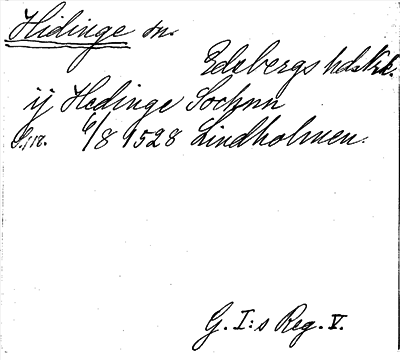 Hidinge sn.
Edsbergs hd. Nrk.
ij Hedinge Sochnn
6/8 1528 Lindholmen.
G. I:s Reg. V.